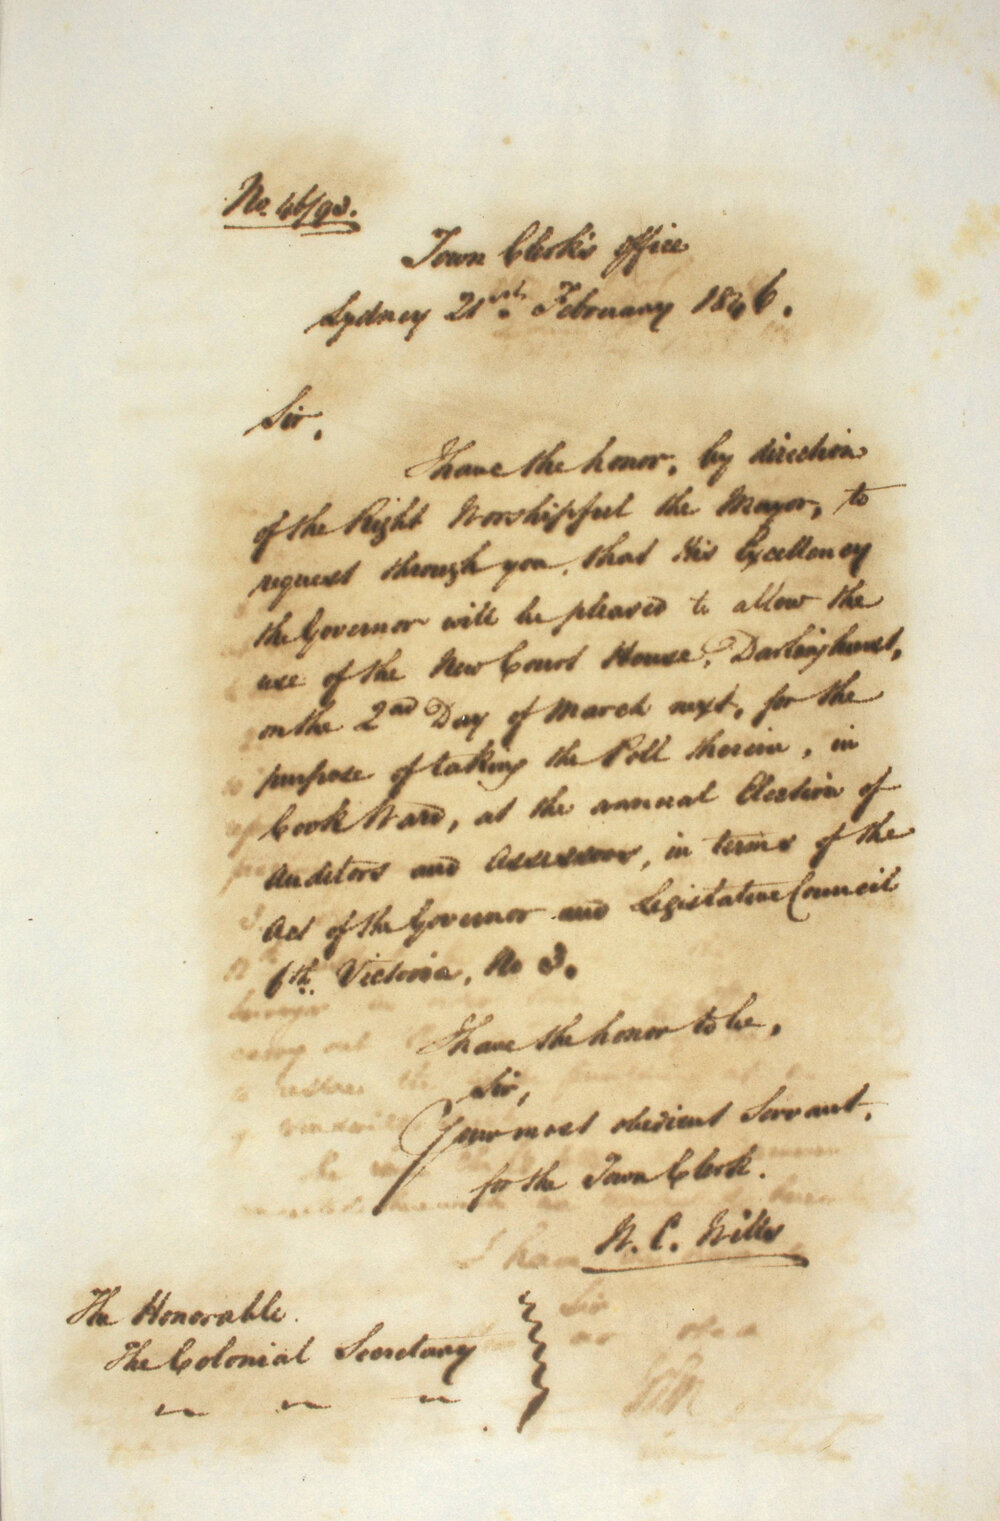 No. 46/93.
Town Clerk's Office
Sydney 21st February 1846.
Sir,
I have the honor, by direction
of the Right Worshipful the Mayor, to
request through you, that His Excellency
the Governor will be pleased to allow the
use of the New Court House, Darlinghurst,
on the 2nd Day of March next, for the
purpose of taking the Poll therein, in
Cook Ward, at the annual Election of
Auditors and Assessors, in terms of the
Act of the Governor and Legislative Council
6th Victoria, No 3.
I have the honor to be,
Sir,
Your most obedient Servant,
for the Town Clerk.
W. C. Wills
The Honorable
The Colonial Secretary